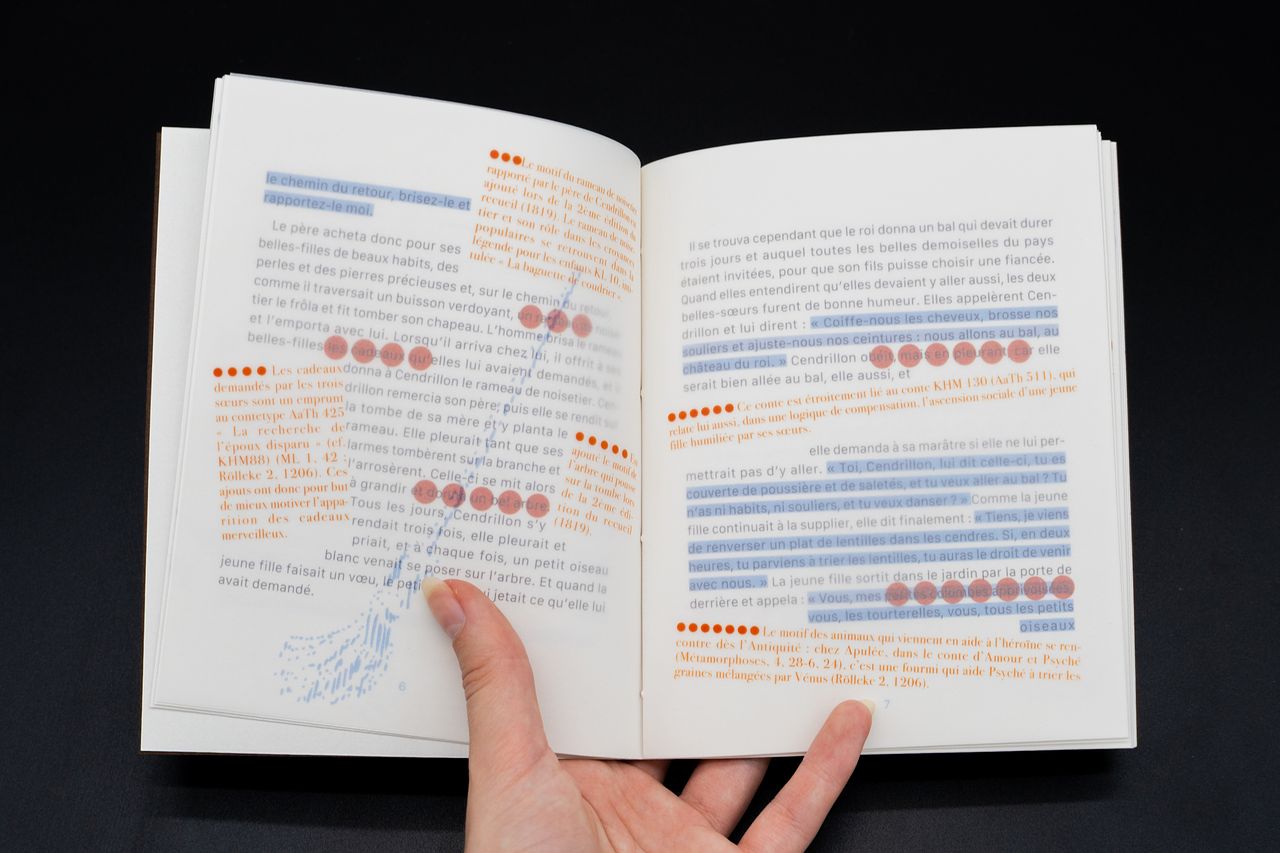 le chemin du retour, brisez-le et
rapportez-le moi.
●●●Le motif du rameau de noisetier
rapporté par le père de Cendrillon
ajouté lors de la 2ème édition du
recueil (1819). Le rameau de noise-
tier et son rôle dans les croyances
populaires se retrouvent dans la
légende pour les enfants KL 10, inti-
tulée « La baguette de coudrier ».
Le père acheta donc pour ses
belles-filles de beaux habits, des
perles et des pierres précieuses et, sur le chemin du retour,
comme il traversait un buisson verdoyant, un rameau de noise-
tier le frôla et fit tomber son chapeau. L'homme brisa le rameau
et l'emporta avec lui. Lorsqu'il arriva chez lui, il offrit à ses
belles-filles les cadeaux qu'elles lui avaient demandés, et il
donna à Cendrillon le rameau de noisetier. Cen-
drillon remercia son père, puis elle se rendit sur
la tombe de sa mère et y planta le
rameau. Elle pleurait tant que ses
larmes tombèrent sur la branche et
l'arrosèrent. Celle-ci se mit alors
à grandir et donna un bel arbre.
Tous les jours, Cendrillon s'y
rendait trois fois, elle pleurait et
priait, et à chaque fois, un petit oiseau
blanc venait se poser sur l'arbre. Et quand la
jeune fille faisait un vœu, le peti jetait ce qu'elle lui
avait demandé.
●●●● Les cadeaux
demandés par les trois
sœurs sont un emprunt
au contetype AaTh 425
« La recherche de
l'époux disparu » (cf.
KHM88) (ML 1, 42 ;
Rölleke 2, 1206). Ces
ajouts ont donc pour but
de mieux motiver l'appa-
rition des cadeaux
merveilleux.
●●●●● En
ajouté le motif de
l'arbre qui pousse
sur la tombe lors
de la 2ème édi-
tion du recueil
(1819).
6
Il se trouva cependant que le roi donna un bal qui devait durer
trois jours et auquel toutes les belles demoiselles du pays
étaient invitées, pour que son fils puisse choisir une fiancée.
Quand elles entendirent qu'elles devaient y aller aussi, les deux
belles-sœurs furent de bonne humeur. Elles appelèrent Cen-
drillon et lui dirent : « Coiffe-nous les cheveux, brosse nos
souliers et ajuste-nous nos ceintures : nous allons au bal, au
château du roi. » Cendrillon obéit, mais en pleurant, car elle
serait bien allée au bal, elle aussi, et
●●●●●● Ce conte est étroitement lié au conte KHM 130 (AaTh 511), qui
relate lui aussi, dans une logique de compensation, l'ascension sociale d'une jeune
fille humiliée par ses sœurs.
elle demanda à sa marâtre si elle ne lui per-
mettrait pas d'y aller. « Toi, Cendrillon, lui dit celle-ci, tu es
couverte de poussière et de saletés, et tu veux aller au bal ? Tu
n'as ni habits, ni souliers, et tu veux danser ? » Comme la jeune
fille continuait à la supplier, elle dit finalement : « Tiens, je viens
de renverser un plat de lentilles dans les cendres. Si, en deux
heures, tu parviens à trier les lentilles, tu auras le droit de venir
avec nous. » La jeune fille sortit dans le jardin par la porte de
derrière et appela : « Vous, mes petites colombes apprivoisées,
vous, les tourterelles, vous, tous les petits
oiseaux
●●●●●●● Le motif des animaux qui viennent en aide à l'héroïne se ren-
contre dès l'Antiquité : chez Apulée, dans le conte d'Amour et Psyché
(Métamorphoses, 4, 28-6, 24), c'est une fourmi qui aide Psyché à trier les
graines mélangées par Vénus (Rölleke 2, 1206).
7